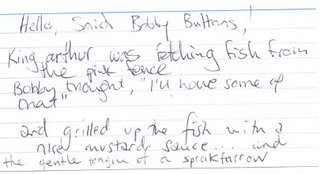 Hello, Said Bobby Buttons!
King arthur was fetching fish from
the pink fence
Bobby thought, "I'll have some of
that"
and grilled up the fish with a
nice mustard sauce... and
the gentle tongue of a